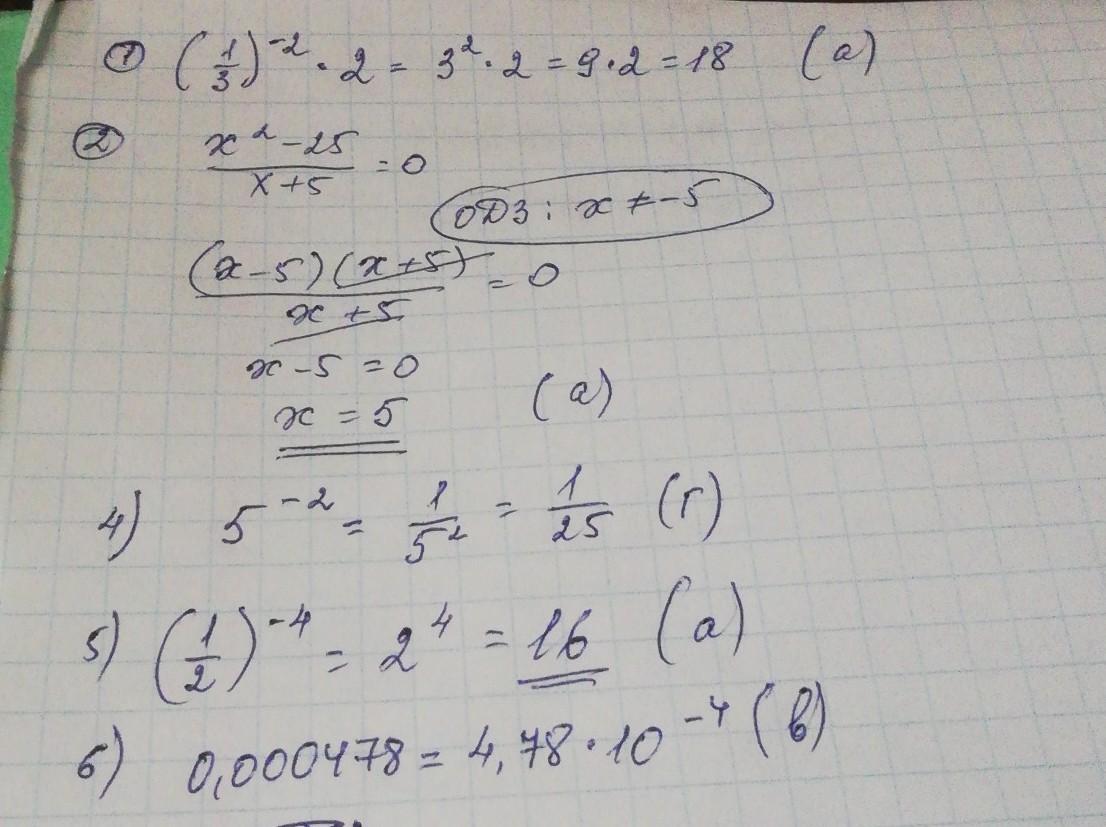 ① (1/3)^-2 · 2 = 3^2 · 2 = 9 · 2 = 18 (а)
② (x^2 - 25)/(x + 5) = 0
ОДЗ: x ≠ -5
((x - 5)(x + 5))/(x + 5) = 0
x - 5 = 0
x = 5 (а)
4) 5^-2 = 1/5^2 = 1/25 (Г)
5) (1/2)^-4 = 2^4 = 16 (а)
6) 0,000478 = 4,78 · 10^-4 (в)